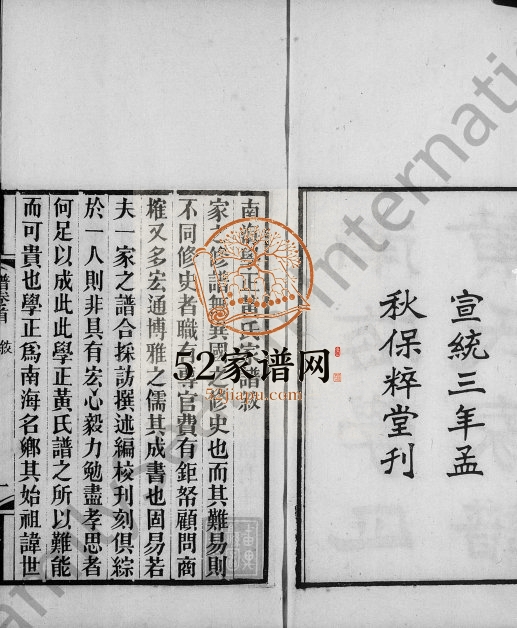 宣統三年孟
秋保粹堂刊
南海學正黃氏家譜敘
家之修譜無異國之修史也而其難易則
不同修史者職有專官費有鉅帑顧問商
榷又多宏通博雅之儒其成書也固易若
夫一家之譜合採訪撰述編校刊刻俱綜
於一人則非具有宏心毅力勉盡孝思者
何足以成此此學正黃氏譜之所以難能
而可貴也學正爲南海名鄉其始祖諱世
譜卷首 敘 一
52家谱网
52jiapu.com
Family
Internati